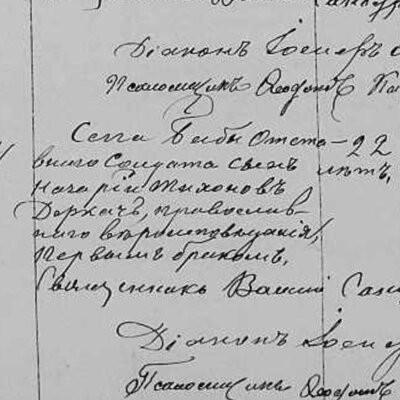 Діаконъ Іосифъ
Псаломщикъ Феофанъ
Села Бабы Отста- 22
внаго Солдата сынъ лѣтъ,
Назарій Тихоновъ
Деркачъ, православ-
наго вѣроисповѣданія,
первымъ бракомъ.
Священникъ Василій
Діаконъ Іосиф
Псаломщикъ Феофанъ